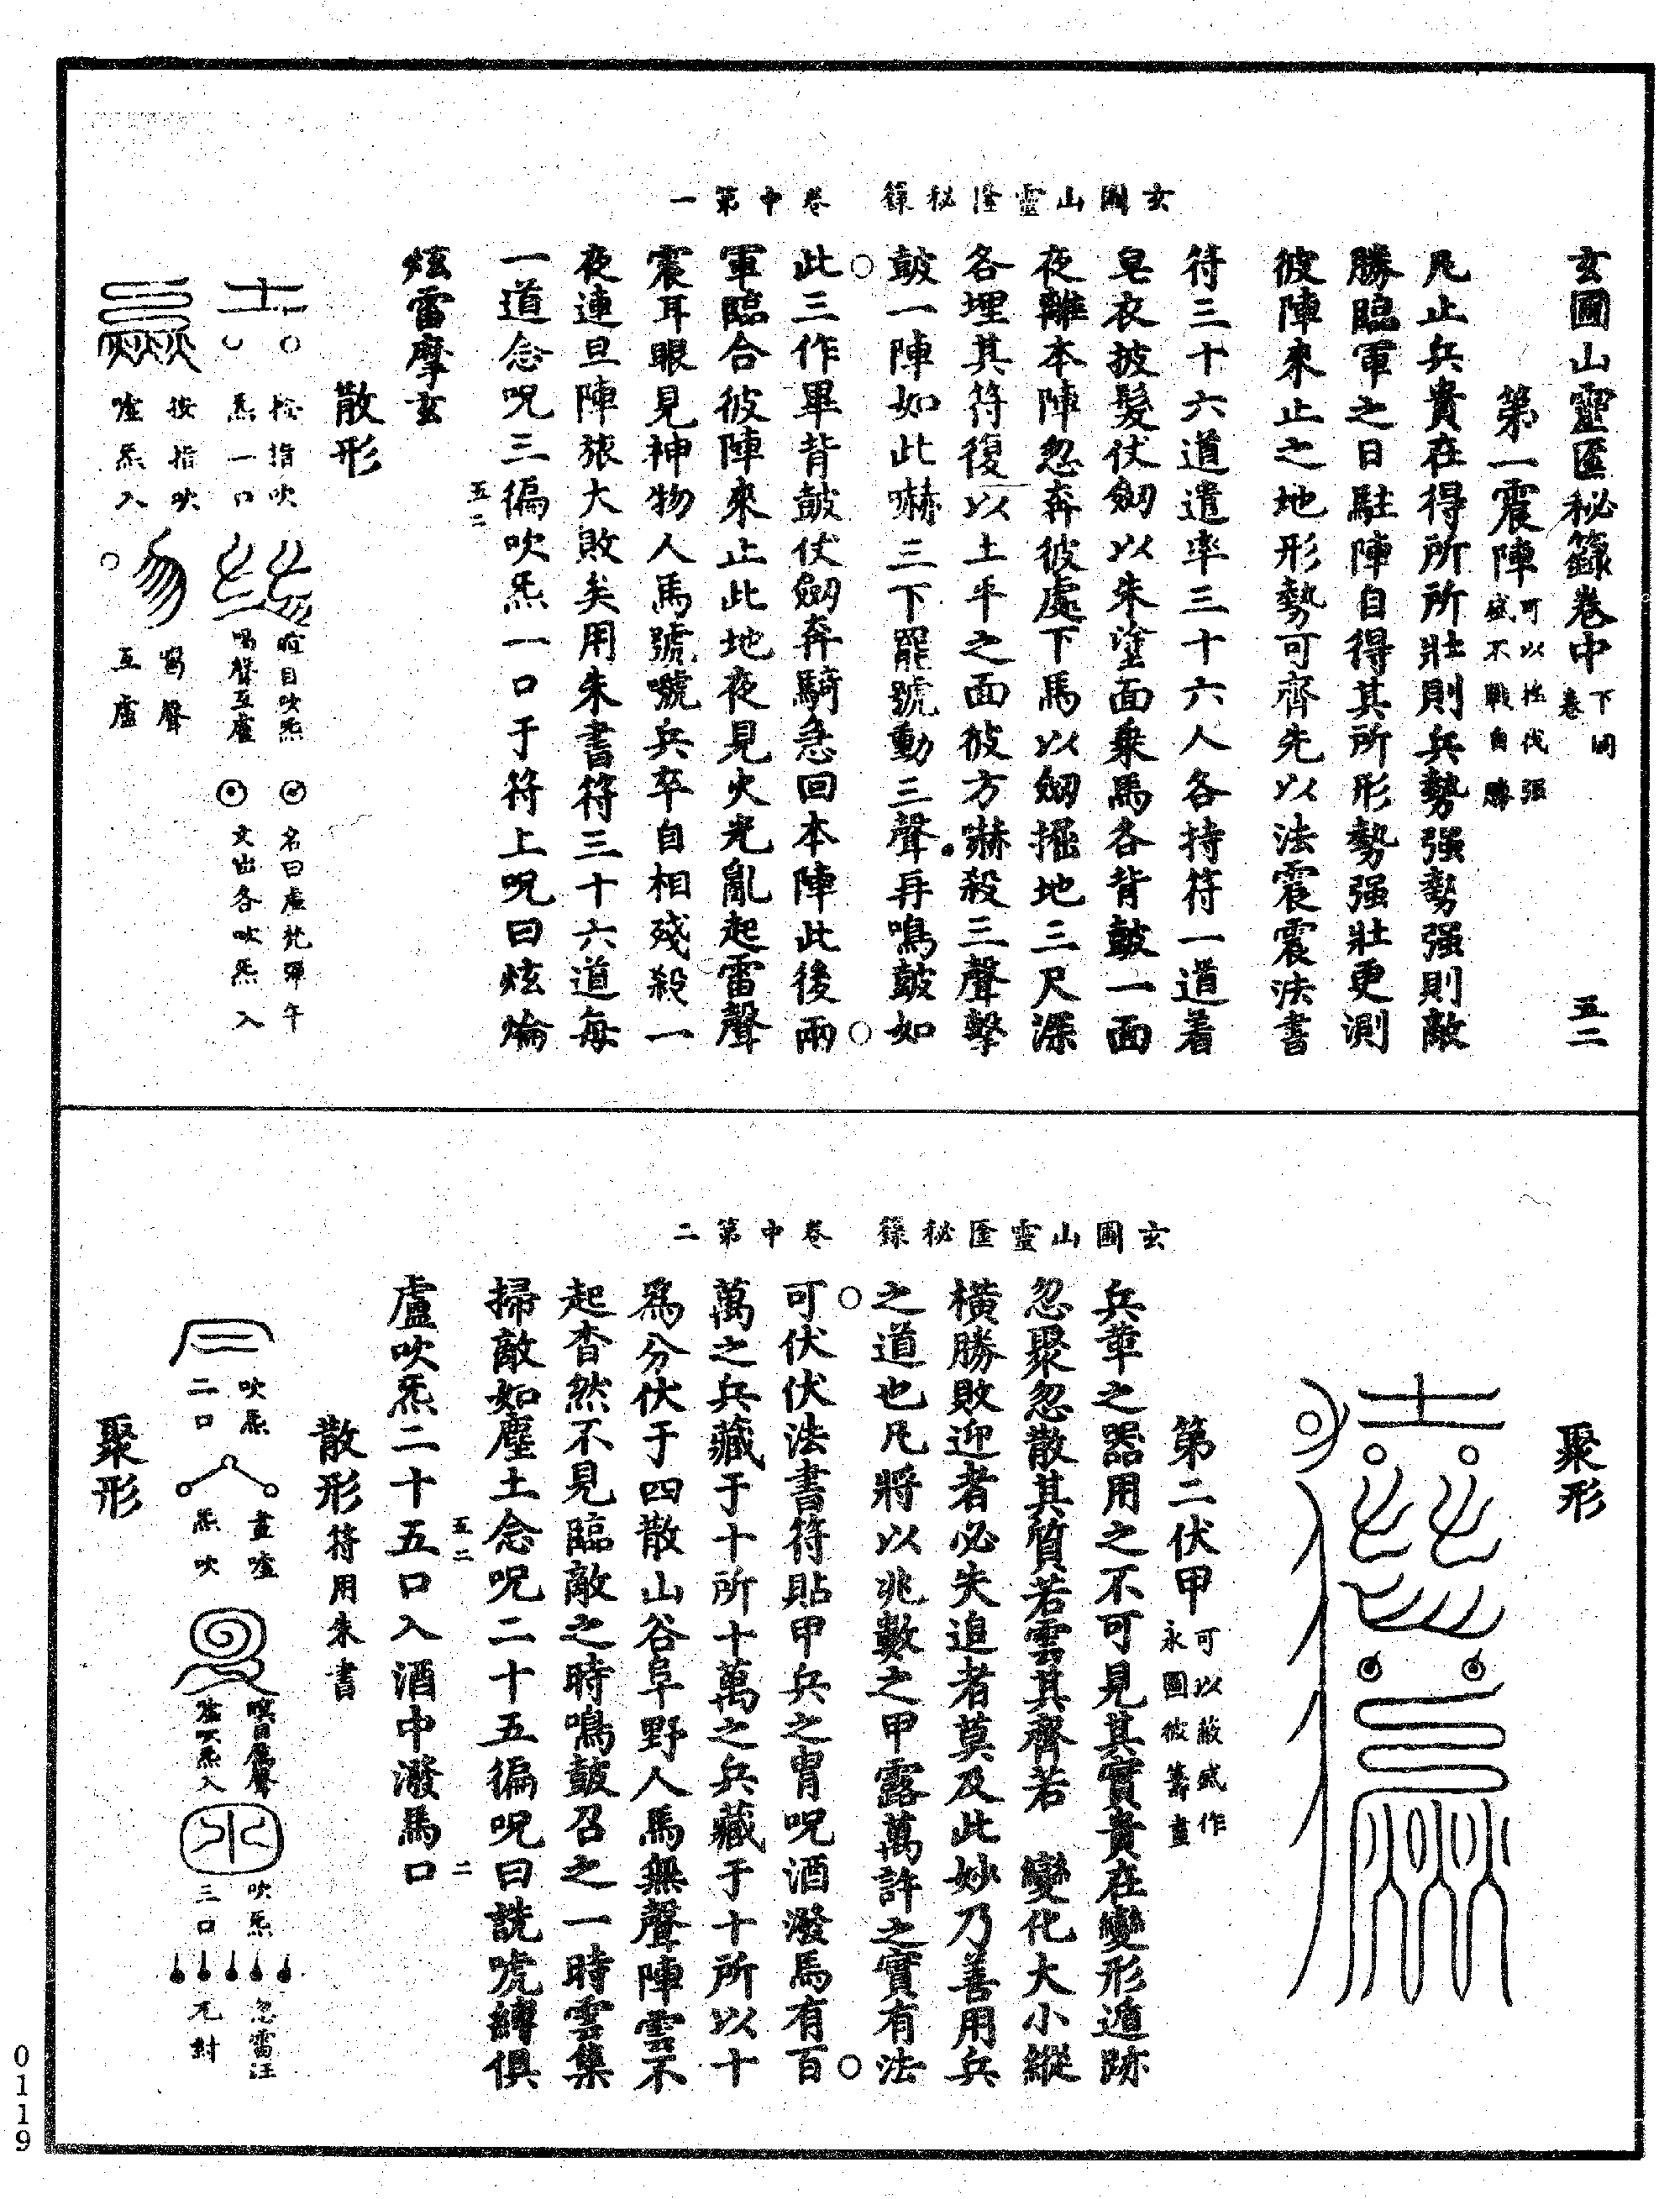 玄圃山靈匧秘籙　卷中第一
玄圃山靈匧秘籙卷中 下同卷 五二
第一震陣 可以挫伐强 不戰自勝
凡止兵貴在得所所壯則兵勢强勢强則敵
勝臨軍之日駐陣自得其所形勢强壯更測
彼陣來止之地形勢可齊先以法震震法書
符三十六道遣率三十六人各持符一道着
皂衣披髮仗劒以朱塗面乗馬各背鼓一面
夜離本陣忽奔彼處下馬以劒掘地三尺深
各埋其符復以土平之面彼方嚇殺三聲擊
鼓一陣如此嚇三下罷號動三聲再鳴鼓如
此三作畢背鼓仗劒奔騎急回本陣此後兩
軍臨合彼陣來止此地夜見火光亂起雷聲
震耳眼見神物人馬號嘶兵卒自相殘殺一
夜連旦陣旅大敗矣用朱書符三十六道每
一道念呪三徧吹炁一口于符上呪曰炫燴
五二
炫雷摩玄
散形
指吹
炁一口
瞪目吹炁
喝聲互盧
名曰虛梵彈午
文出各吹炁入
按指吹
噓炁入
喝聲
互盧
玄圃山靈匧秘籙　卷中第二
聚形
第二伏甲 可以蔽 作 永圖彼籌畫
兵革之器用之不可見其實貴在變形遁跡
忽聚忽散其質若雲其齊若　變化大小縱
橫勝敗迎者必失追者莫及此妙乃善用兵
之道也凡將以兆數之甲露萬許之實有法
可伏伏法書符貼甲兵之冑呪酒潑馬有百
萬之兵藏于十所十萬之兵藏于十所以十
爲分伏于四散山谷阜野人馬無聲陣雲不
起杳然不見臨敵之時鳴鼓召之一時雲集
掃敵如塵土念呪二十五徧呪曰詵唬縛俱
五二 二
盧吹炁二十五口入酒中潑馬口
散形符用朱書
吹炁
二口
畫噓
炁吹
瞑目厲聲
吹炁入
吹炁
三口
忽雷汪
尢封
聚形
0119